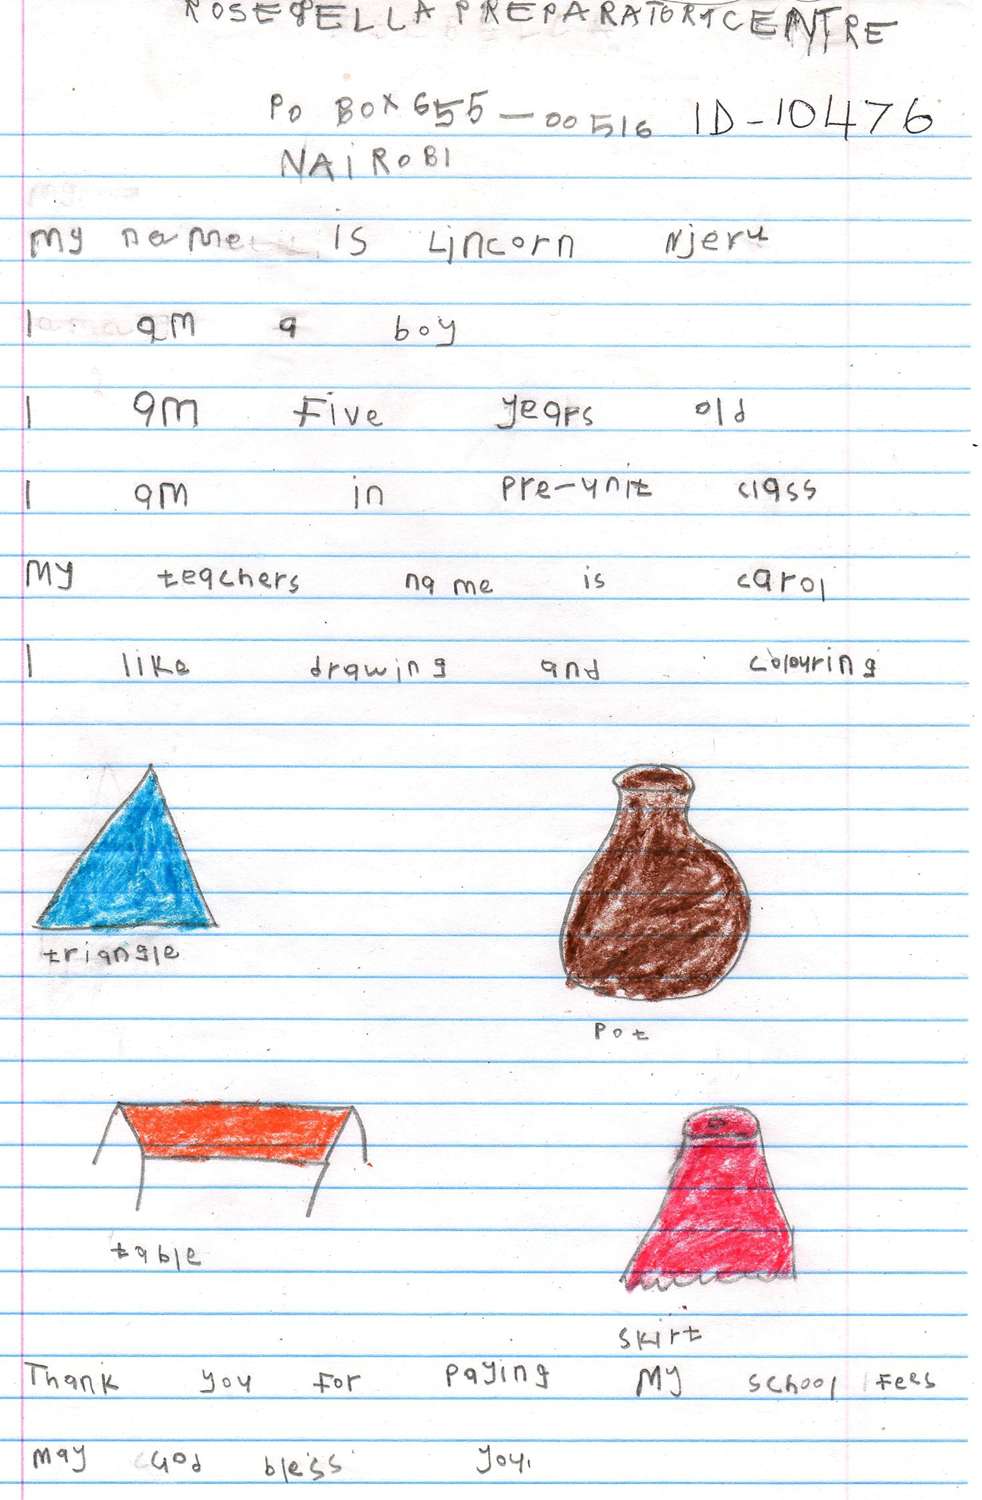 ROSEBELLA PREPARATORY CENTRE
PO BOX 655 - 00516 ID-10476
NAIROBI
My name is Lincorn Njeru
I am a boy
I am Five years old
I am in pre-unit class
My teachers name is carol
I like drawing and colouring
triangle
Pot
table
skirt
Thank you for paying My school Fees
may God bless you.